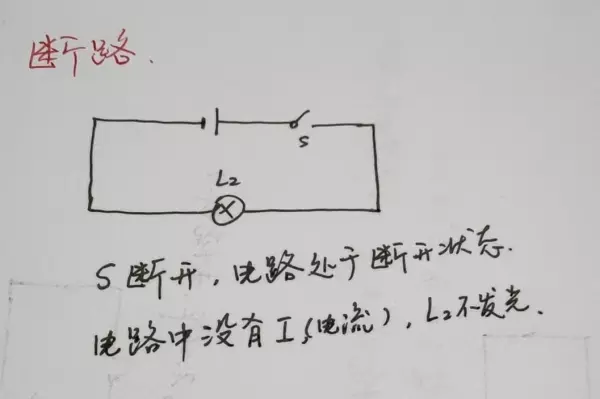 断路.
S
L2
S断开,电路处于断开状态.
电路中没有I(电流),L2不发光.